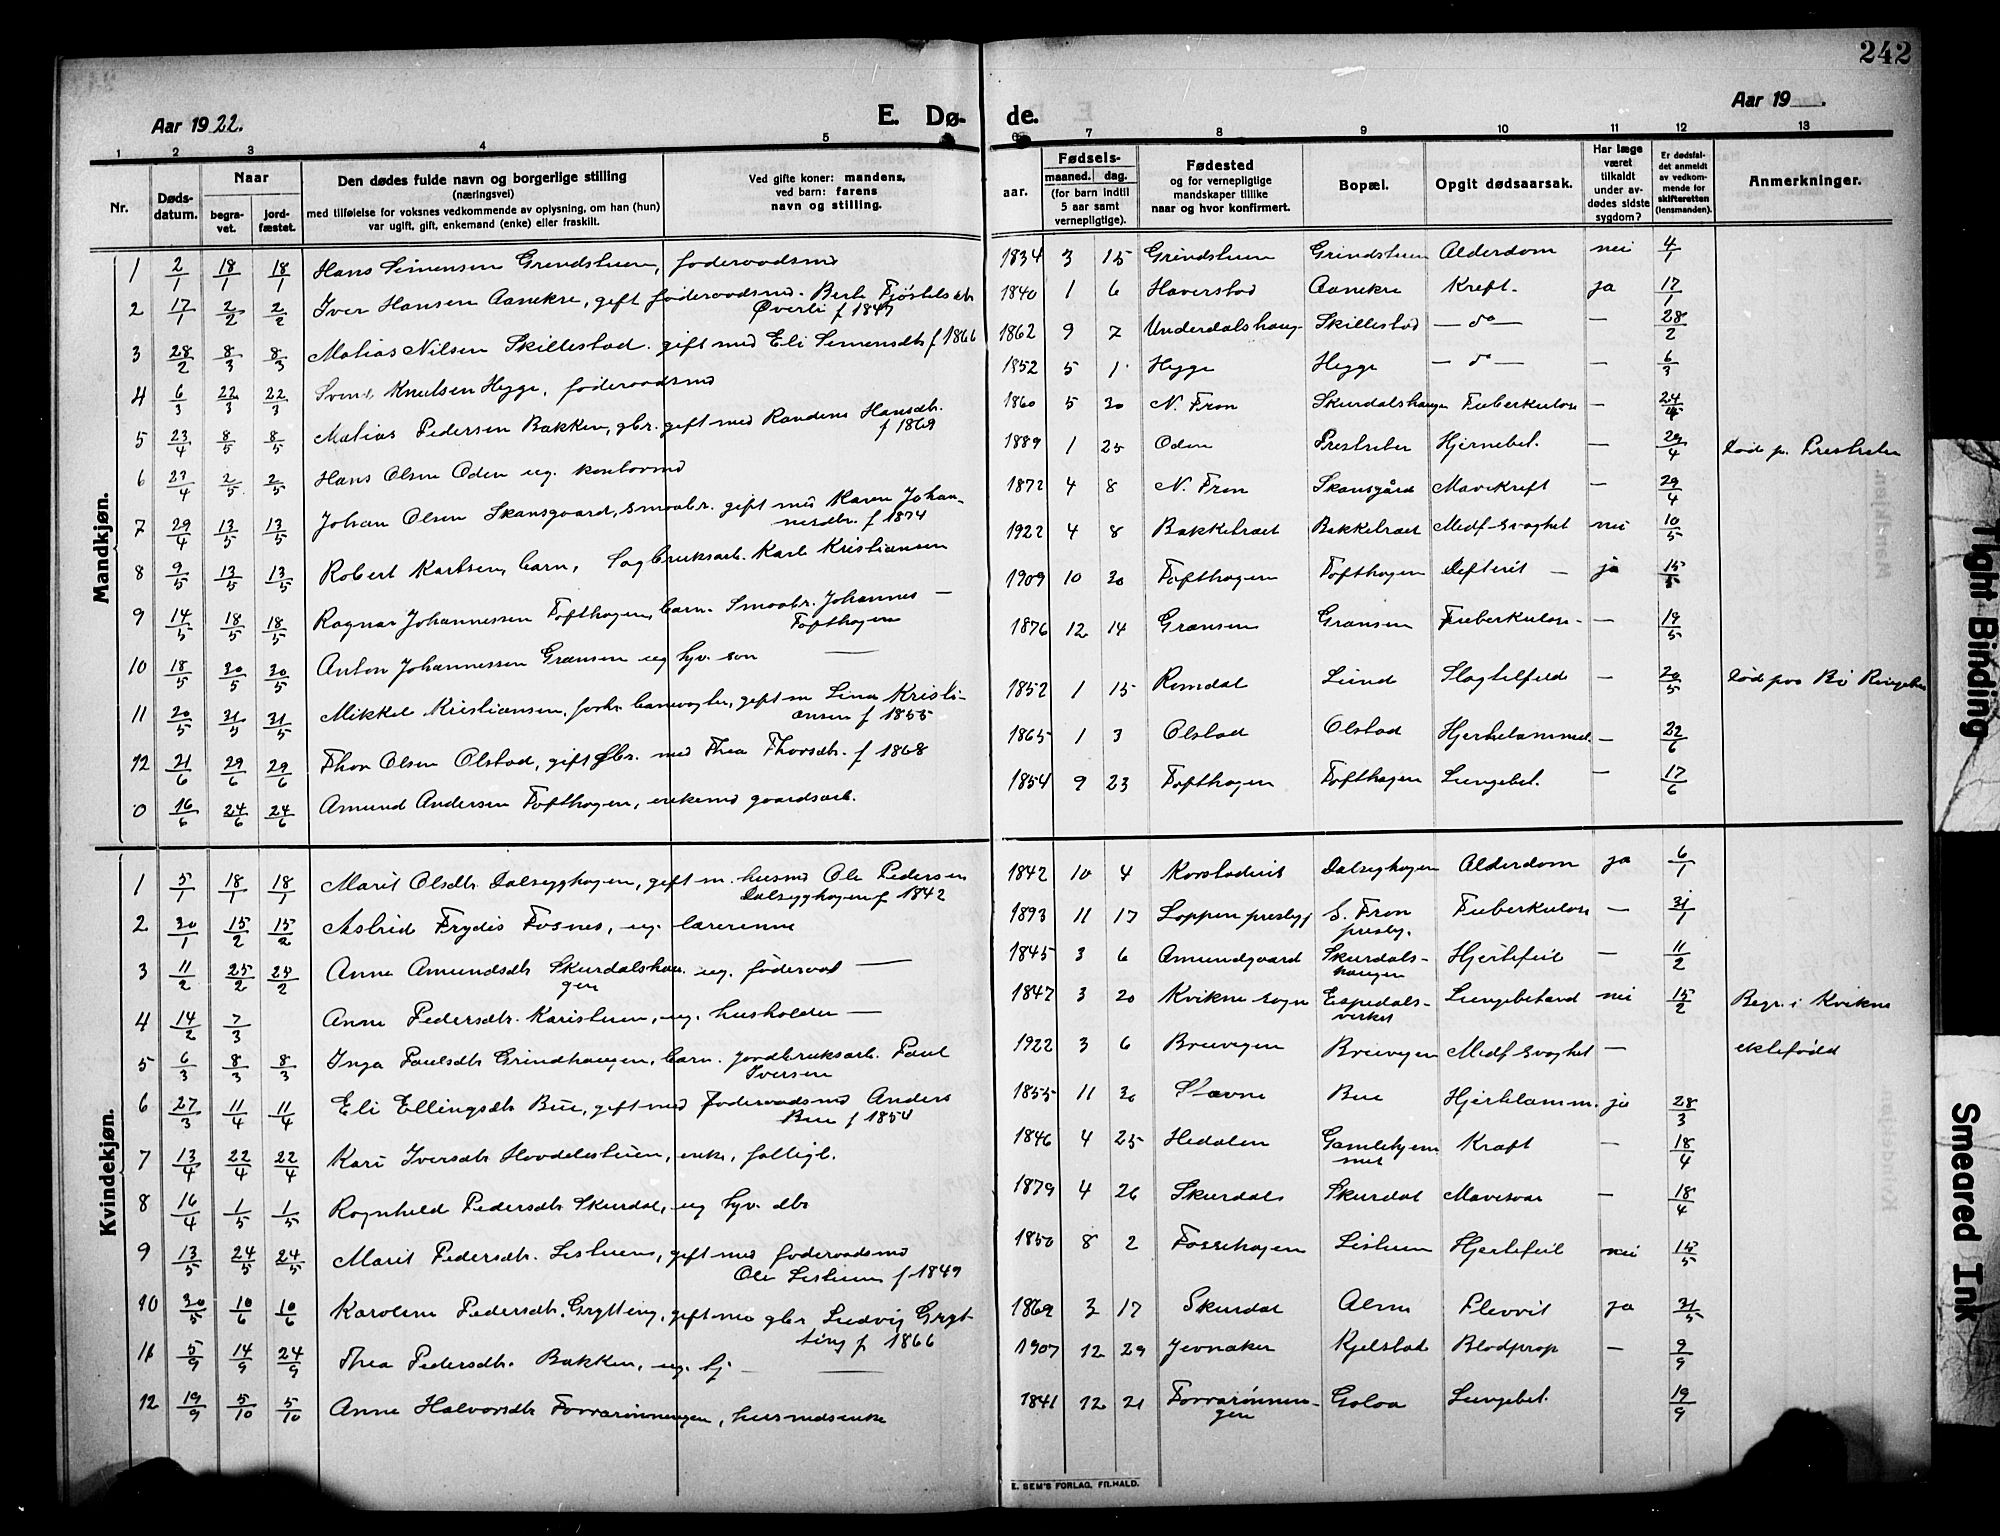 242
Aar 1922.
E. Dø-
de.
Aar 19 .
1 2 3 4 5 6 7 8 9 10 11 12 13
Nr.
Døds-
datum.
Naar
begra-
vet.
jord-
fæstet.
Den dødes fulde navn og borgerlige stilling
(næringsvei)
med tilføielse for voksnes vedkommende av oplysning, om han (hun)
var ugift, gift, enkemand (enke) eller fraskilt.
Ved gifte koner: mandens,
ved barn: farens
navn og stilling.
aar.
Fødsels-
maaned. dag.
(for barn indtil
5 aar samt
vernepligtige).
Fødested
og for vernepligtige
mandskaper tillike
naar og hvor konfirmert.
Bopæl.
Opgit dødsaarsak.
Har læge
været
tilkaldt
under av-
dødes sidste
sygdom?
Er dødsfal-
det anmeldt
av vedkom-
mende for
skifteretten
(lensmanden).
Anmerkninger.
Mandkjøn.
1 2/1 18/1 18/1 Hans Simensen Grindstuen, føderaadsmd 1834 3 15 Grindstuen Grindstuen Alderdom nei 4/1
2 17/1 2/2 2/2 Iver Hansen Aanekre, gift føderaadsmd. Berte Fjøstelsdt. 1840 1 6 Haverstad Aanekre Kreft ja 17/1
Øverli f 1847
3 28/2 8/3 8/3 Matias Nilsen Skillestad gift med Eli Simensdt. f 1866 1862 9 7 Underdalshaug Skillestad — do — — 28/2
4 6/3 22/3 22/3 Svend Knutsen Hygge, føderaadsmd 1852 5 1 Hygge Hygge — do — 6/3
5 23/4 8/5 8/5 Matias Pedersen Bakken, gbr. gift med Randene Hansdt. 1860 5 30 N. Fron Skurdalshaugen Tuberkulose — 24/4
f 1869
6 27/4 2/5 2/5 Hans Olsen Oden ug. kontormd 1889 1 25 Oden Prestseter Hjernebet. — 29/4 Død p. Prestseter
7 29/4 13/5 13/5 Johan Olsen Skansgaard, smaabr. gift med Karen Johan- 1872 4 8 N. Fron Skansgård Mavekreft — 29/4
nesdt. f 1874
8 9/5 13/5 13/5 Robert Karlsen, barn, Sagbruksarb. Karl Kristiansen 1922 4 8 Bakketræet Bakketræet Medf svaghet nei 10/5
9 14/5 18/5 18/5 Ragnar Johannessen Tofthagen, barn. Smaabr. Johannes 1909 10 20 Tofthagen Tofthagen Difterit — ja 15/5
Tofthagen
10 18/5 30/5 30/5 Anton Johannessen Grænsen ug hjv. søn — 1876 12 14 Grænsen Grænsen Tuberkulose — 19/5
11 20/5 31/5 31/5 Mikkel Kristiansen, forh. banevogter, gift m. Lina Kristi- 1852 1 15 Romdal Lund Slagtilfelde — 20/5 død paa Bø Ringebu
ansen f 1855
12 21/6 29/6 29/6 Thor Olsen Olstad, gift gbr. med Thea Thorsdt. f 1868 1865 1 3 Olstad Olstad Hjertelammel. — 22/6
0 16/6 24/6 24/6 Amund Andersen Tofthagen, enkemd gaardsarb. 1854 9 23 Tofthagen Tofthagen Lungebet. — 17/6
Kvindekjøn.
1 5/1 18/1 18/1 Marit Olsdt. Dalseghagen, gift m. husmd Ole Pedersen 1842 10 4 Dalseghagen Alderdom ja 6/1
Dalseghagen f 1842
2 30/1 15/2 15/2 Astrid Frydis Fosnes, ug. lærerinne 1893 11 17 Loppen presbyg S. Fron Tuberkulose — 31/1
presby.
3 11/2 25/2 25/2 Anne Amundsdt. Skurdalshau- ug. føderaad — 1845 3 6 Amundgaard Skurdals- Hjertefeil — 11/2
gen
haugen
4 14/2 7/3 Anne Pedersdt. Karistuen, ug. husholder — 1847 3 20 Kvikne sogn Espedals- Lungebetænd nei 15/2 Begr. i Kvikne
verket
5 6/3 8/3 8/3 Inga Paulsdt. Grindhaugen, barn. Jordbruksarb. Paul 1922 3 6 Breivegen Breivegen Medf svaghet — ektefødd
Iversen
6 27/3 11/4 11/4 Eli Ellingsdt. Bue, gift med Føderaadsmd Anders 1855 11 30 Stavne Bue Hjertelamm. ja 28/3
Bue f 1854
7 13/4 22/4 22/4 Kari Iversdt. Hovdelistuen, enke, fattigl. 1846 4 25 Hedalen Gamlehjem- Kræft — 18/4
met
8 16/4 1/5 1/5 Ragnhild Pedersdt. Skurdal, ug hjv. dtr 1879 4 26 Skurdal Skurdal Mavesaar — 18/4
9 13/5 24/5 24/5 Marit Pedersdt. Listuen, gift med føderaadsmd 1850 8 2 Fossehagen Listuen Hjertefeil nei 15/5
Ole Listuen f 1849
10 30/5 10/6 10/6 Karoline Pedersdt. Grytting, gift med gbr Ludvig Gryt- 1869 3 17 Skurdal Alme Plevrit ja 31/5
ting f 1866
11 5/9 14/9 24/9 Thea Pedersdt. Bakken, ug. tj — 1907 12 29 Jevnaker Kjelstad Blodprop — 9/9
12 19/9 5/10 5/10 Anne Halvorsdt. Forrarønningen, husmdsenke 1841 12 21 Forrarønnin- Golaa Lungebet. 19/9
gen
E. SEM'S FORLAG, FR.HALD.
Tight Binding
Smeared Ink